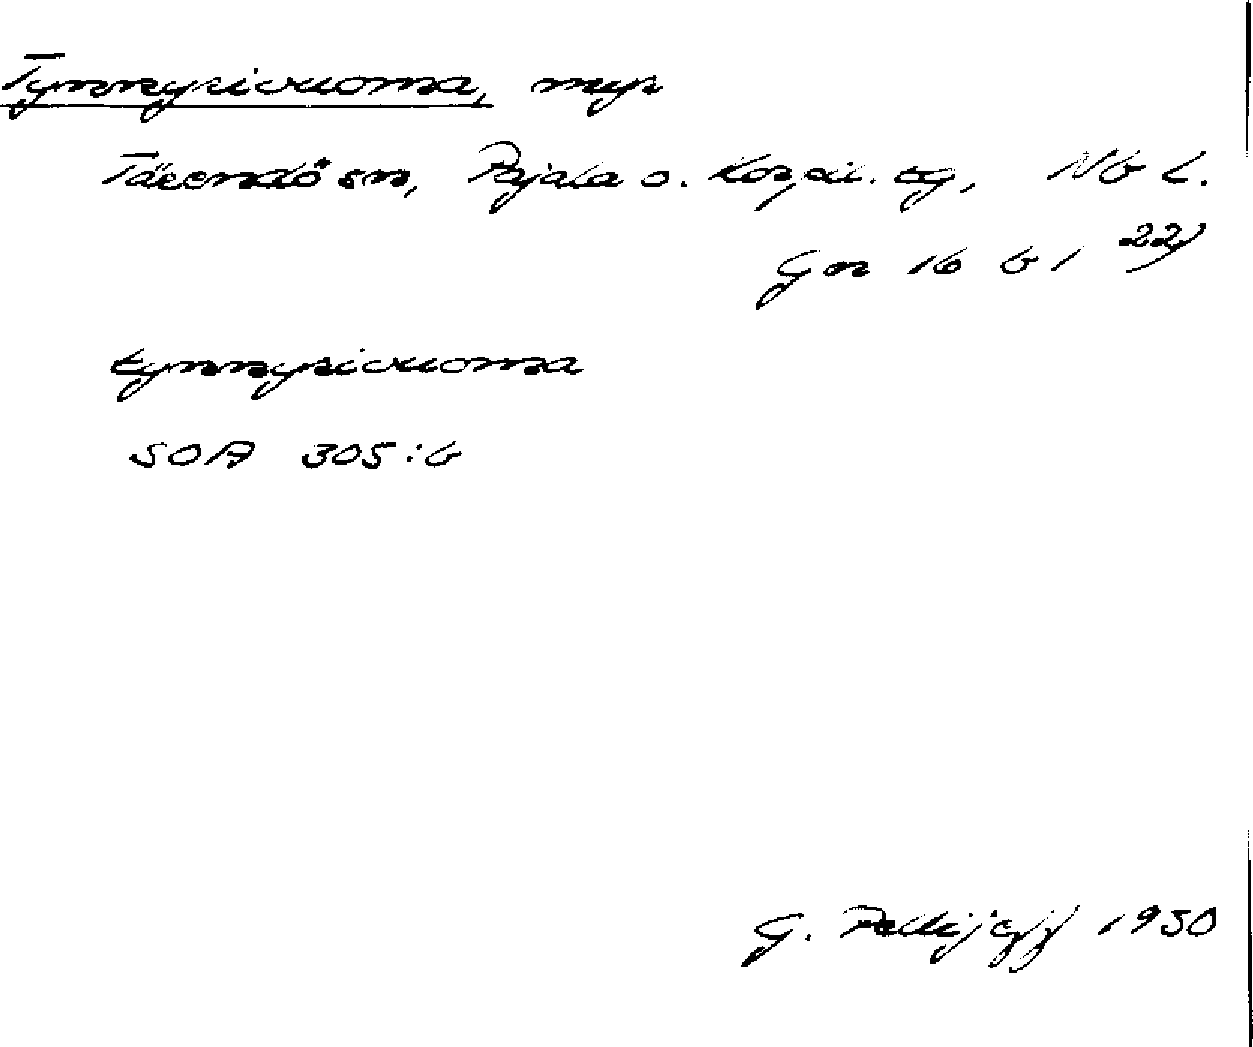 Tynnyrivuoma, myr
Tärendö sn, Pajala o. Korpil. tg, Nb L.
Gen 16 b 1 22)
tynnyrivuoma
SOA 305:6
G. Pellijeff 1950